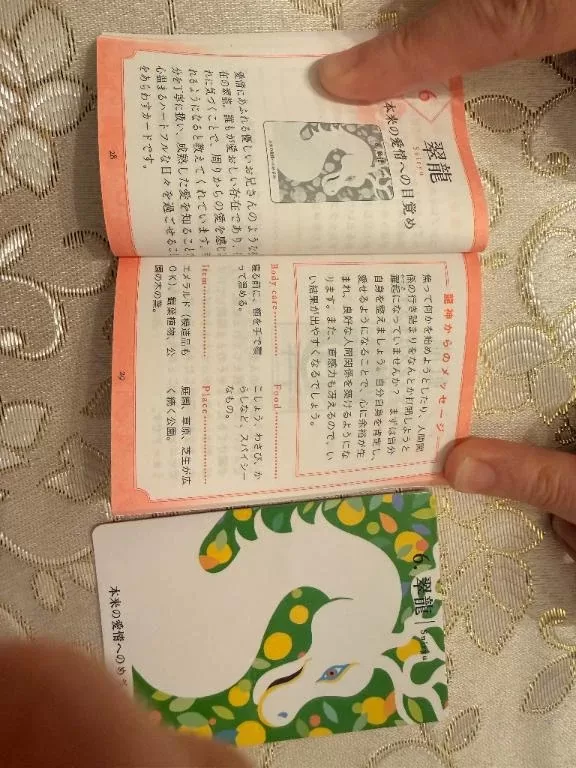 6
翠龍
Suiryu
本来の愛情への目覚め
愛情にあふれる優しいお兄さんのような
在の翠龍。誰もが愛おしい存在であり、
れに気づくことで、周りからの愛を感じ
れるようになると教えてくれています。
分を丁寧に扱い、成熟した愛を知ること
心温まるハートフルな日々を過ごせるこ
をあらわすカードです。
28
龍神からのメッセージ
焦って何かを始めようとしたり、人間関
係の行き詰まりをなんとか打開しようと
躍起になっていませんか? まずは自分
自身を整えましょう。自分自身を肯定し、
愛せるようになることで、心に余裕が生
まれ、良好な人間関係を築けるようにな
ります。また、直感力も冴えるので、い
い結果が出やすくなるでしょう。
Body care
寝る前に、頬を手で覆
って温める。
Food
こしょう、わさび、か
らしなど、スパイシー
なもの。
Item
エメラルド(模造品も
OK)、観葉植物、公
園の木の葉。
Place
庭園、草原、芝生が広
く続く公園。
29
6. 翠龍 | Suiryu
本来の愛情へのめ